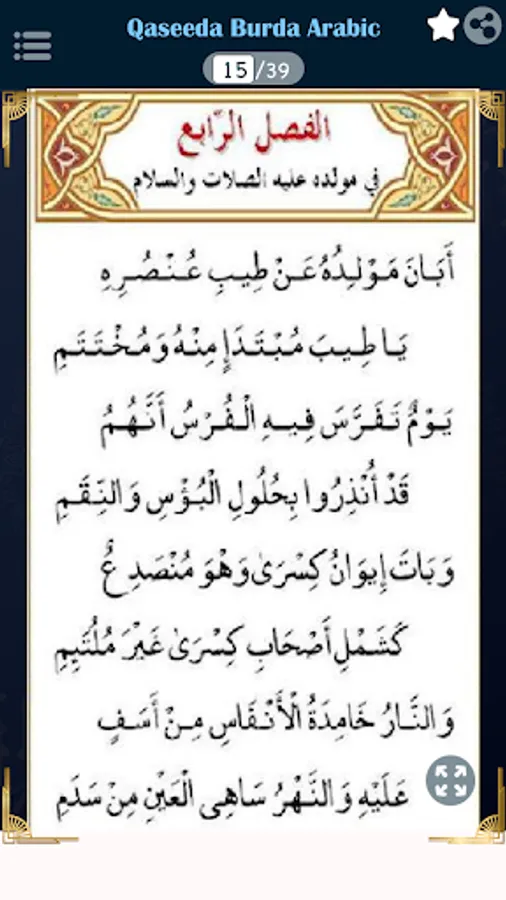 Qaseeda Burda Arabic
15/39
الفصل الرّابع
في مولده عليه الصلات والسلام
أَبَانَ مَوْلِدُهُ عَنْ طِيبِ عُنْصُرِهِ
يَا طِيبَ مُبْتَدَإٍ مِنْهُ وَمُخْتَتَمِ
يَوْمٌ تَفَرَّسَ فِيهِ الْفُرْسُ أَنَّهُمُ
قَدْ أُنْذِرُوا بِحُلُولِ الْبُؤْسِ وَالنِّقَمِ
وَبَاتَ إِيوَانُ كِسْرَىٰ وَهْوَ مُنْصَدِعٌ
كَشَمْلِ أَصْحَابِ كِسْرَىٰ غَيْرَ مُلْتَئِمِ
وَالنَّارُ خَامِدَةُ الْأَنْفَاسِ مِنْ أَسَفٍ
عَلَيْهِ وَالنَّهْرُ سَاهِي الْعَيْنِ مِنْ سَدَمِ